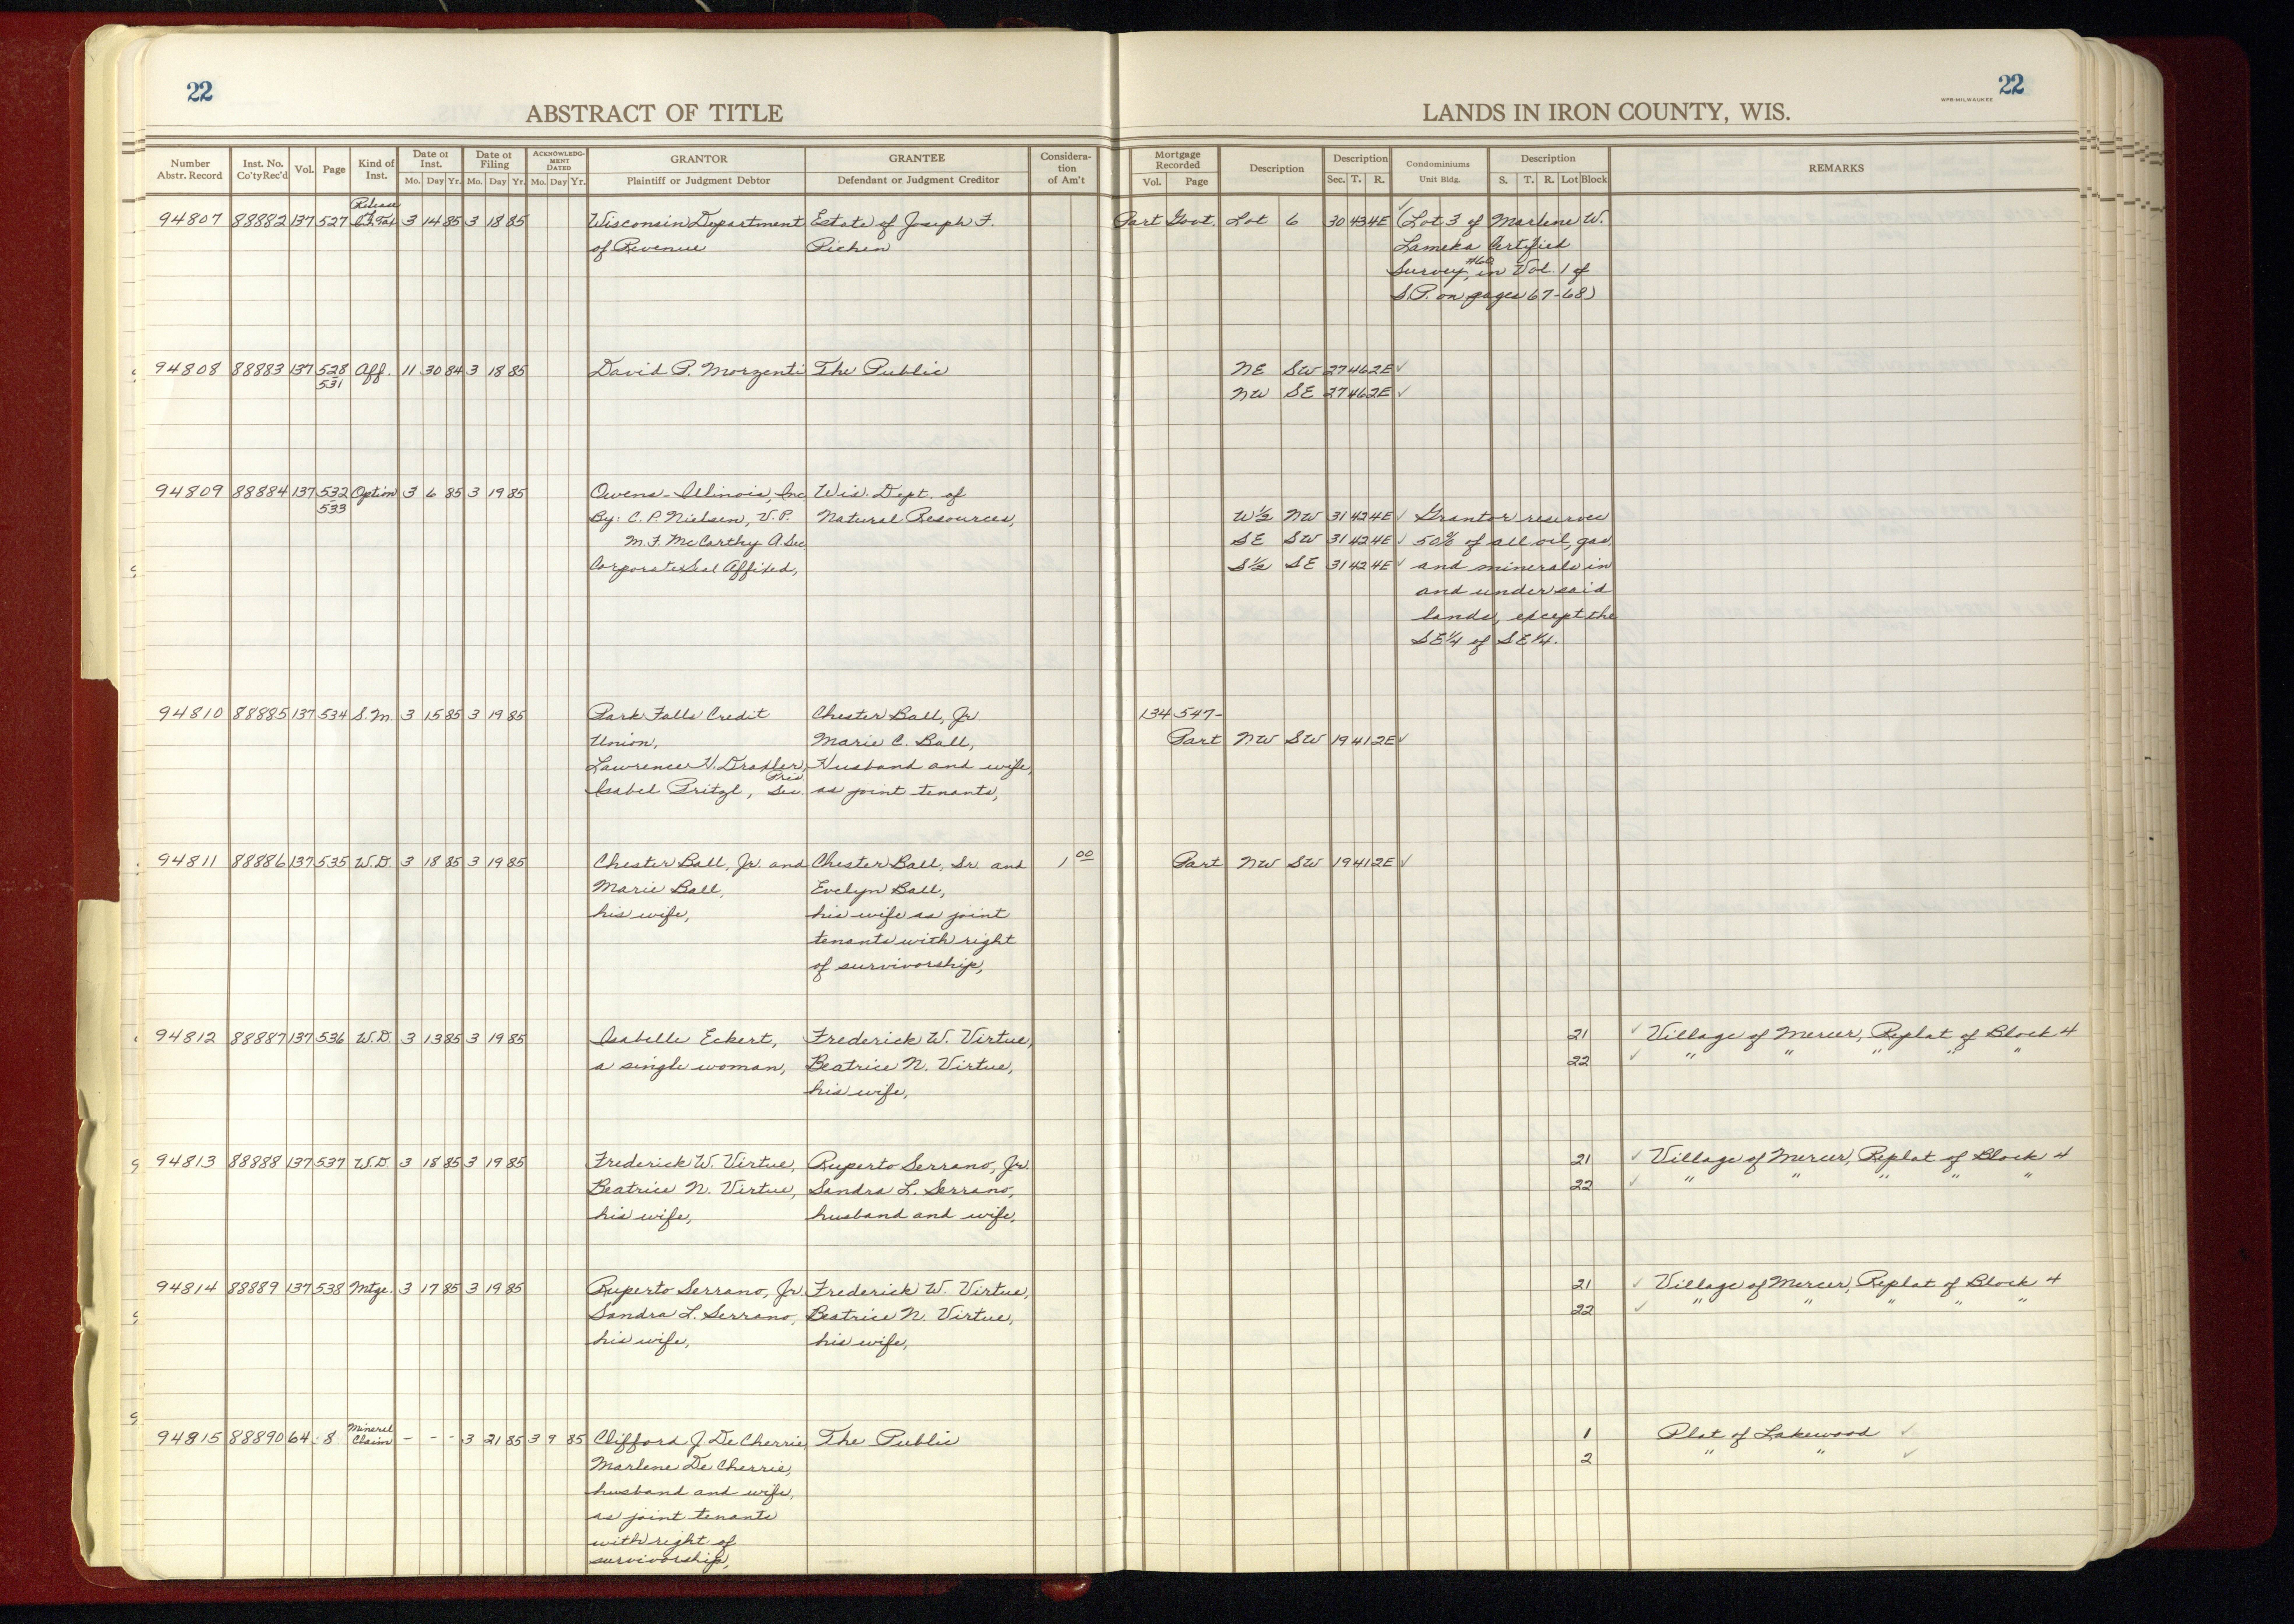 22
22
WPB-MILWAUKEE
ABSTRACT OF TITLE
LANDS IN IRON COUNTY, WIS.
Number Abstr. Record Inst. No. Co'ty Rec'd Vol. Page Kind of Inst. Date of Inst. Mo. Day Yr. Date of Filing Mo. Day Yr. ACKNOWLEDG-MENT DATED Mo. Day Yr. GRANTOR Plaintiff or Judgment Debtor GRANTEE Defendant or Judgment Creditor Considera-tion of Am't Mortgage Recorded Vol. Page Description Description Sec. T. R. Condominiums Unit Bldg. Description S. T. R. Lot Block REMARKS
Release
94807 88882 137 527 3 14 85 3 18 85 Wisconsin Department Estate of Joseph F. Part Govt. Lot 6 30 43 4E ✓ (Lot 3 of Marlene W.
of Revenue Pichen Lameka Certified
Survey, #60 in Vol. 1 of
S.P. on pages 67-68)
94808 88883 137 528 Aff. 11 30 84 3 18 85 David P. Morzenti The Public NE SW 27 46 2E ✓
531 NW SE 27 46 2E ✓
94809 88884 137 532 Option 3 6 85 3 19 85 Owens-Illinois, Inc Wis. Dept. of
533 By: C. P. Nielsen, V.P. Natural Resources, W½ NW 31 42 4E ✓ Grantor reserves
M. F. McCarthy A. Sec SE SW 31 42 4E ✓ 50% of all oil, gas
Corporate Seal Affixed, S½ SE 31 42 4E ✓ and minerals in
and under said
lands, except the
SE¼ of SE¼.
94810 88885 137 534 S.M. 3 15 85 3 19 85 Park Falls Credit Chester Ball, Jr. 134 547-
Union, Marie C. Ball, Part NW SW 19 41 2E ✓
Lawrence H. Draxler, Pres. Husband and wife,
Isabel Pritzl, Sec. as joint tenants,
94811 88886 137 535 W.D. 3 18 85 3 19 85 Chester Ball, Jr. and Chester Ball, Sr. and 1 00 Part NW SW 19 41 2E ✓
Marie Ball, Evelyn Ball,
his wife, his wife as joint
tenants with right
of survivorship,
94812 88887 137 536 W.D. 3 13 85 3 19 85 Isabelle Eckert, Frederick W. Virtue, 21 ✓ Village of Mercer, Replat of Block 4
a single woman, Beatrice N. Virtue, 22 ✓ " " " " "
his wife,
94813 88888 137 537 W.D. 3 18 85 3 19 85 Frederick W. Virtue, Ruperto Serrano, Jr. 21 ✓ Village of Mercer, Replat of Block 4
Beatrice N. Virtue, Sandra L. Serrano, 22 ✓ " " " " "
his wife, husband and wife,
94814 88889 137 538 Mtge. 3 17 85 3 19 85 Ruperto Serrano, Jr. Frederick W. Virtue, 21 ✓ Village of Mercer, Replat of Block 4
Sandra L. Serrano, Beatrice N. Virtue, 22 ✓ " " " " "
his wife, his wife,
94815 88890 64 8 Mineral Claim - - - 3 21 85 3 9 85 Clifford J. De Cherrie, The Public 1 Plat of Lakewood ✓
Marlene De Cherrie, 2 " " ✓
husband and wife,
as joint tenants
with right of
survivorship,